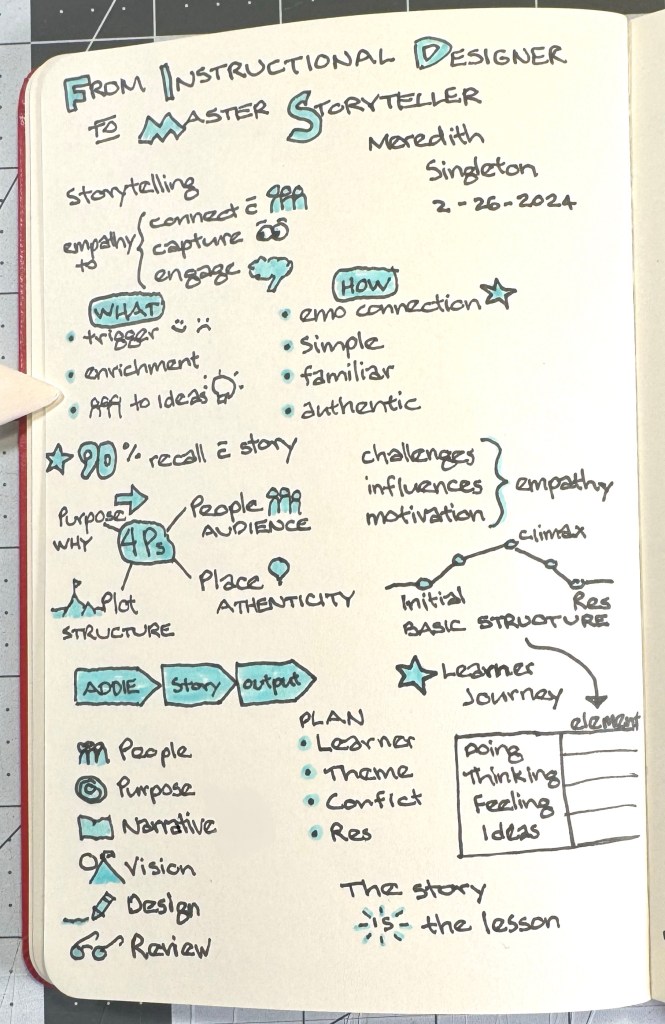 FROM INSTRUCTIONAL DESIGNER
TO MASTER STORYTELLER
Meredith
Singleton
2-26-2024
Storytelling
empathy
to
connect c̄
capture
engage
WHAT
• trigger
• enrichment
• to Ideas
HOW
• emo connection
• Simple
• familiar
• authentic
90% recall c̄ story
challenges
influences
motivation
empathy
4Ps
Purpose
WHY
People
AUDIENCE
Plot
STRUCTURE
Place
ATHENTICITY
climax
Initial
Res
BASIC STRUCTURE
ADDIE
Story
output
Learner
Journey
element
Doing
Thinking
Feeling
Ideas
People
Purpose
Narrative
Vision
Design
Review
PLAN
• Learner
• Theme
• Confict
• Res
The story
is the lesson